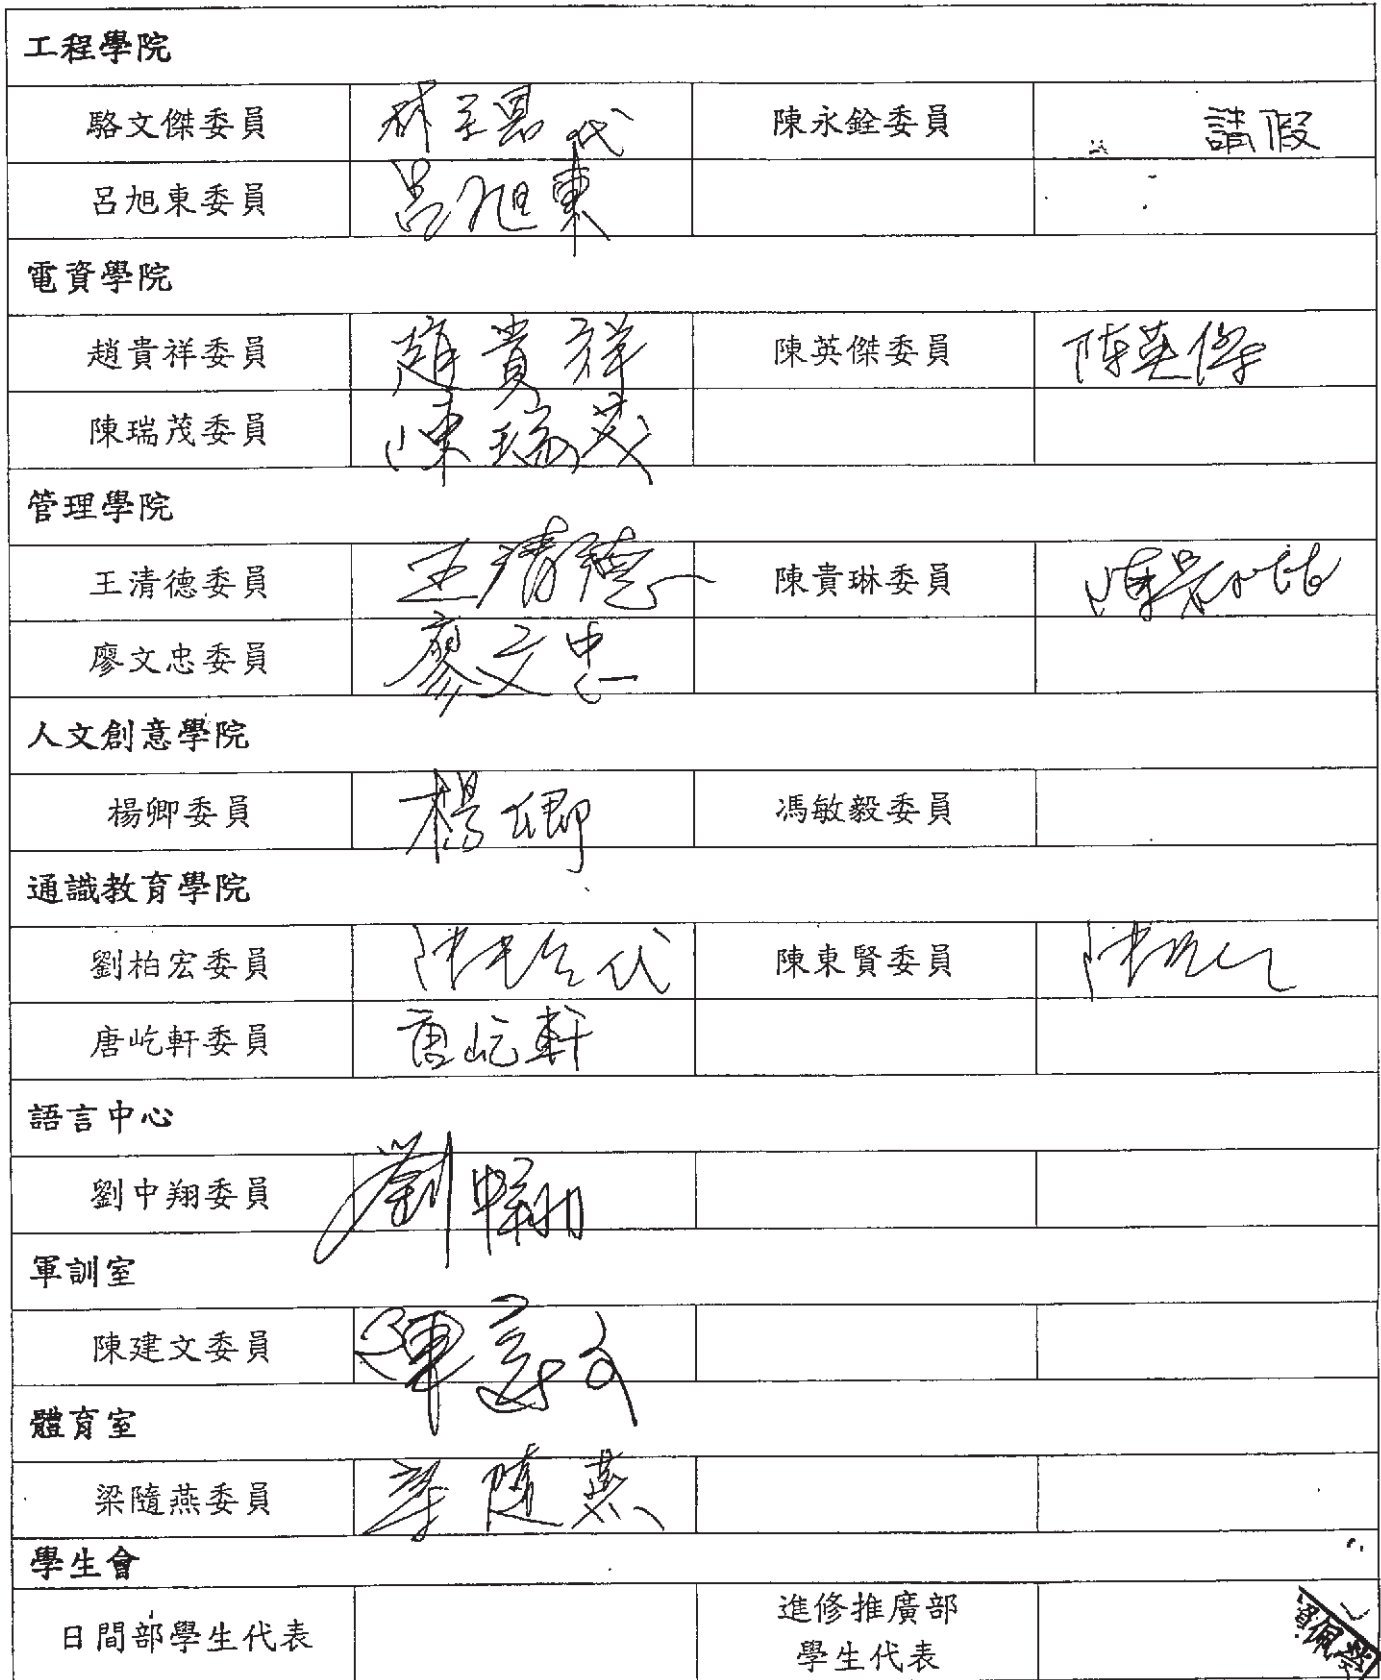 工程學院
駱文傑委員 代 陳永銓委員 請假
呂旭東委員 呂旭東
電資學院
趙貴祥委員 趙貴祥 陳英傑委員 陳英傑
陳瑞茂委員 陳瑞茂
管理學院
王清德委員 王清德 陳貴琳委員
廖文忠委員 廖文忠
人文創意學院
楊卿委員 楊卿 馮敏毅委員
通識教育學院
劉柏宏委員 代 陳東賢委員
唐屹軒委員 唐屹軒
語言中心
劉中翔委員 劉中翔
軍訓室
陳建文委員 陳建文
體育室
梁隨燕委員 梁隨燕
學生會
日間部學生代表 進修推廣部
學生代表